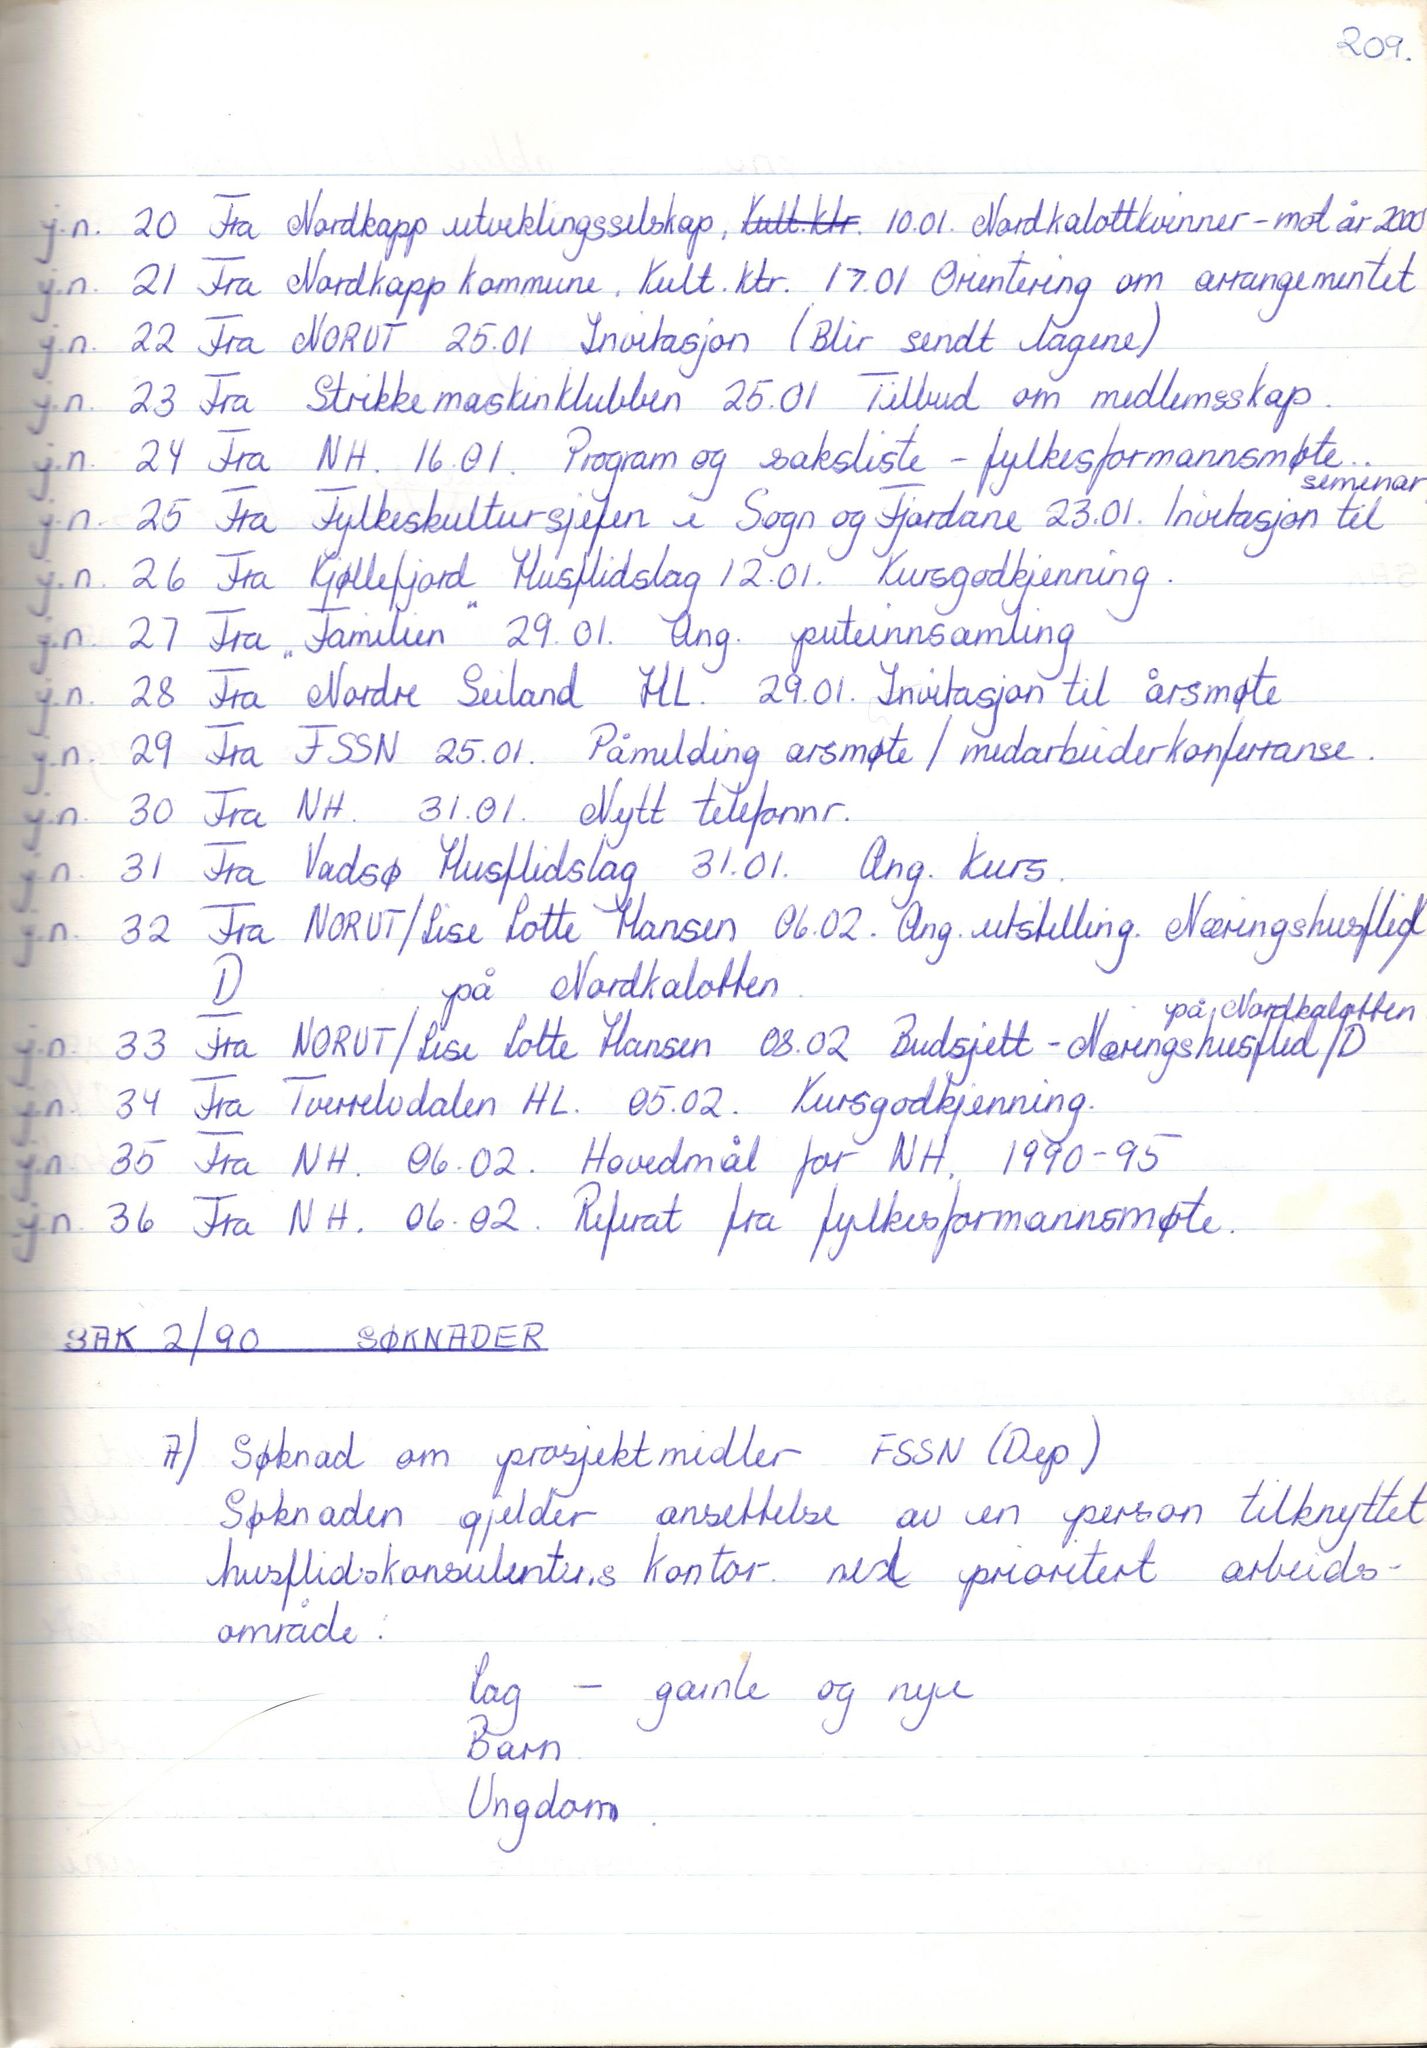 209.
j.n. 20 Fra Nordkapp utviklingsselskap, Kult.ktr. 10.01. Nordkalottkvinner - mot år 2000
j.n. 21 Fra Nordkapp kommune. Kult. ktr. 17.01 Orientering om arrangementet
j.n. 22 Fra NORUT 25.01 Invitasjon (Blir sendt lagene)
j.n. 23 Fra Strikkemaskinklubben 25.01 Tilbud om medlemsskap.
j.n. 24 Fra NH. 16.01. Program og saksliste - fylkesformannsmøte..
seminar
j.n. 25 Fra Fylkeskultursjefen i Sogn og Fjordane 23.01. Invitasjon til
j.n. 26 Fra Kjøllefjord Husflidslag 12.01. Kursgodkjenning.
j.n. 27 Fra „Familien" 29.01. Ang. puteinnsamling
j.n. 28 Fra Nordre Seiland HL. 29.01. Invitasjon til årsmøte
j.n. 29 Fra FSSN 25.01. Påmelding årsmøte / medarbeiderkonferranse.
j.n. 30 Fra NH. 31.01. Nytt telefonnr.
j.n. 31 Fra Vadsø Husflidslag 31.01. Ang. kurs.
j.n. 32 Fra NORUT/Lise Lotte Hansen 06.02. Ang. utstilling. Næringshusflid/
D på Nordkalotten
på Nordkalotten
j.n. 33 Fra NORUT/Lise Lotte Hansen 08.02 Budsjett - Næringshusflid/D
j.n. 34 Fra Tverrelvdalen HL. 05.02. Kursgodkjenning.
j.n. 35 Fra NH. 06.02. Hovedmål for NH. 1990-95
j.n. 36 Fra NH. 06.02. Referat fra fylkesformannsmøte.
SAK 2/90 SØKNADER
A) Søknad om prosjektmidler FSSN (Dep)
Søknaden gjelder ansettelse av en person tilknyttet
husflidskonsulentens kontor. med prioritert arbeids-
område:
Lag - gamle og nye
Barn
Ungdom.